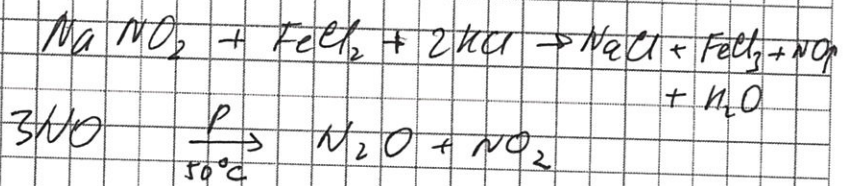 NaNO₂ + FeCl₂ + 2HCl → NaCl + FeCl₃ + NO↑
+ H₂O
3NO P→50°C N₂O + NO₂